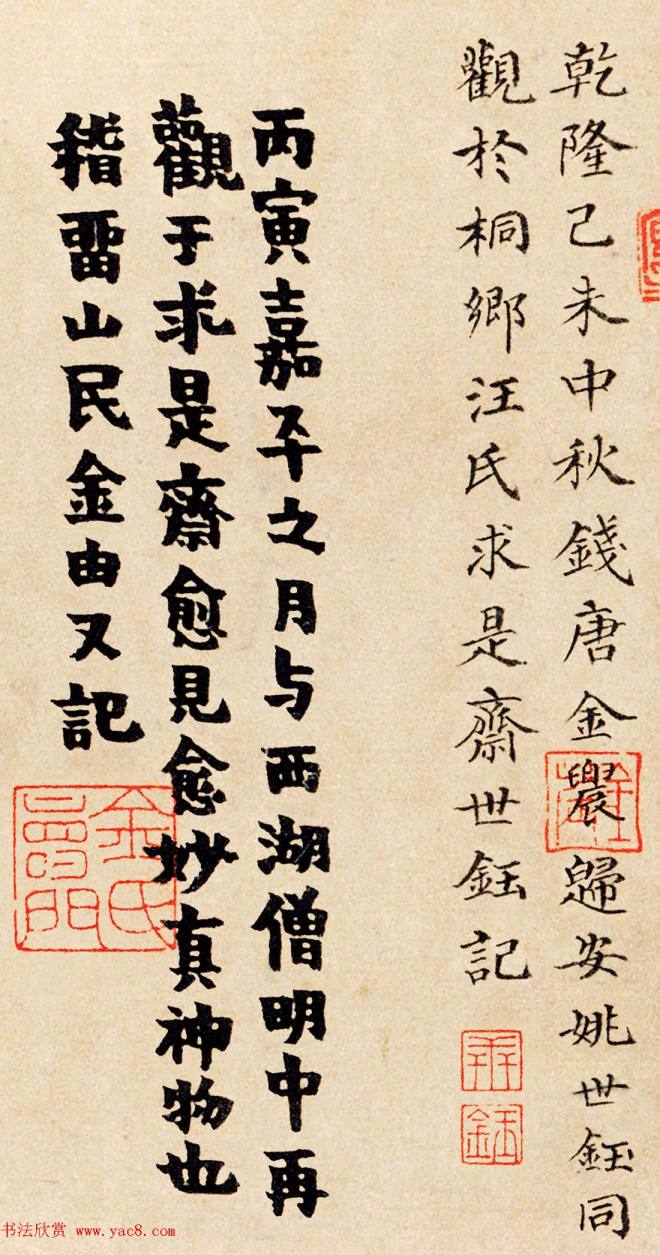 乾隆己未中秋錢唐金農歸安姚世鈺同
觀於桐鄉汪氏求是齋世鈺記
丙寅嘉平之月与西湖僧明中再
觀于求是齋愈見愈妙真神物也
稽畱山民金由又記
金氏
世鈺
书法欣赏 www.yac8.com